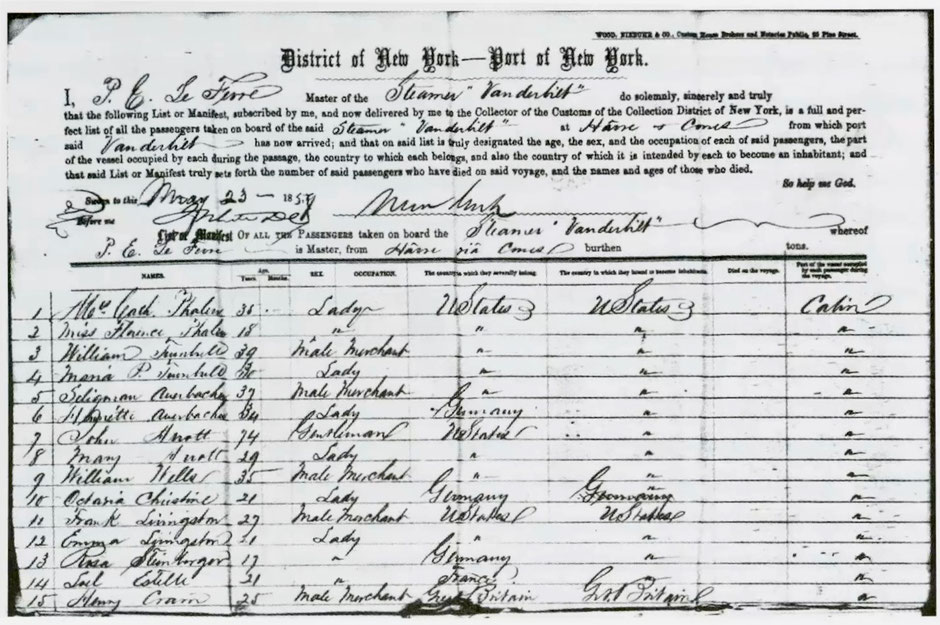 WOOD, NIEBUHR & CO., Custom House Brokers and Notaries Public, 25 Pine Street.
District of New York—Port of New York.
I, P. E. Le Fevre Master of the Steamer "Vanderbilt" do solemnly, sincerely and truly
that the following List or Manifest, subscribed by me, and now delivered by me to the Collector of the Customs of the Collection District of New York, is a full and per-
fect list of all the passengers taken on board of the said Steamer "Vanderbilt" at Havre & Cowes from which port
said Vanderbilt has now arrived; and that on said list is truly designated the age, the sex, and the occupation of each of said passengers, the part
of the vessel occupied by each during the passage, the country to which each belongs, and also the country of which it is intended by each to become an inhabitant; and
that said List or Manifest truly sets forth the number of said passengers who have died on said voyage, and the names and ages of those who died.
So help me God.
Sworn to this May 23 — 185
Before me
List or Manifest OF ALL THE PASSENGERS taken on board the Steamer "Vanderbilt" whereof
P. E. Le Fevre is Master, from Havre via Cowes burthen tons.
NAMES. Age. Years. Months. SEX. OCCUPATION. The country to which they severally belong. The country in which they intend to become inhabitants. Died on the voyage. Part of the vessel occupied by each passenger during the voyage.
1 Phalen 35 Lady U States U States Cabin
2 Miss Florence Phalen 18 " " " "
3 William Turnbull 39 Male Merchant " " "
4 Maria P. Turnbull 30 Lady " " "
5 Seligman Auerbacher 37 Male Merchant " " "
6 Auerbacher 34 Lady Germany " "
7 John Arrott 74 Gentleman U States " "
8 Mary Arrott 29 Lady " " "
9 William Wells 35 Male Merchant " " "
10 Octavia Christine 21 Lady Germany Germany "
11 Frank Livingston 27 Male Merchant U States U States "
12 Emma Livingston 21 Lady " " "
13 Rosa 17 " Germany " "
14 Estelle 21 " France " "
15 Henry Cram 25 Male Merchant Great Britain Grt Britain "